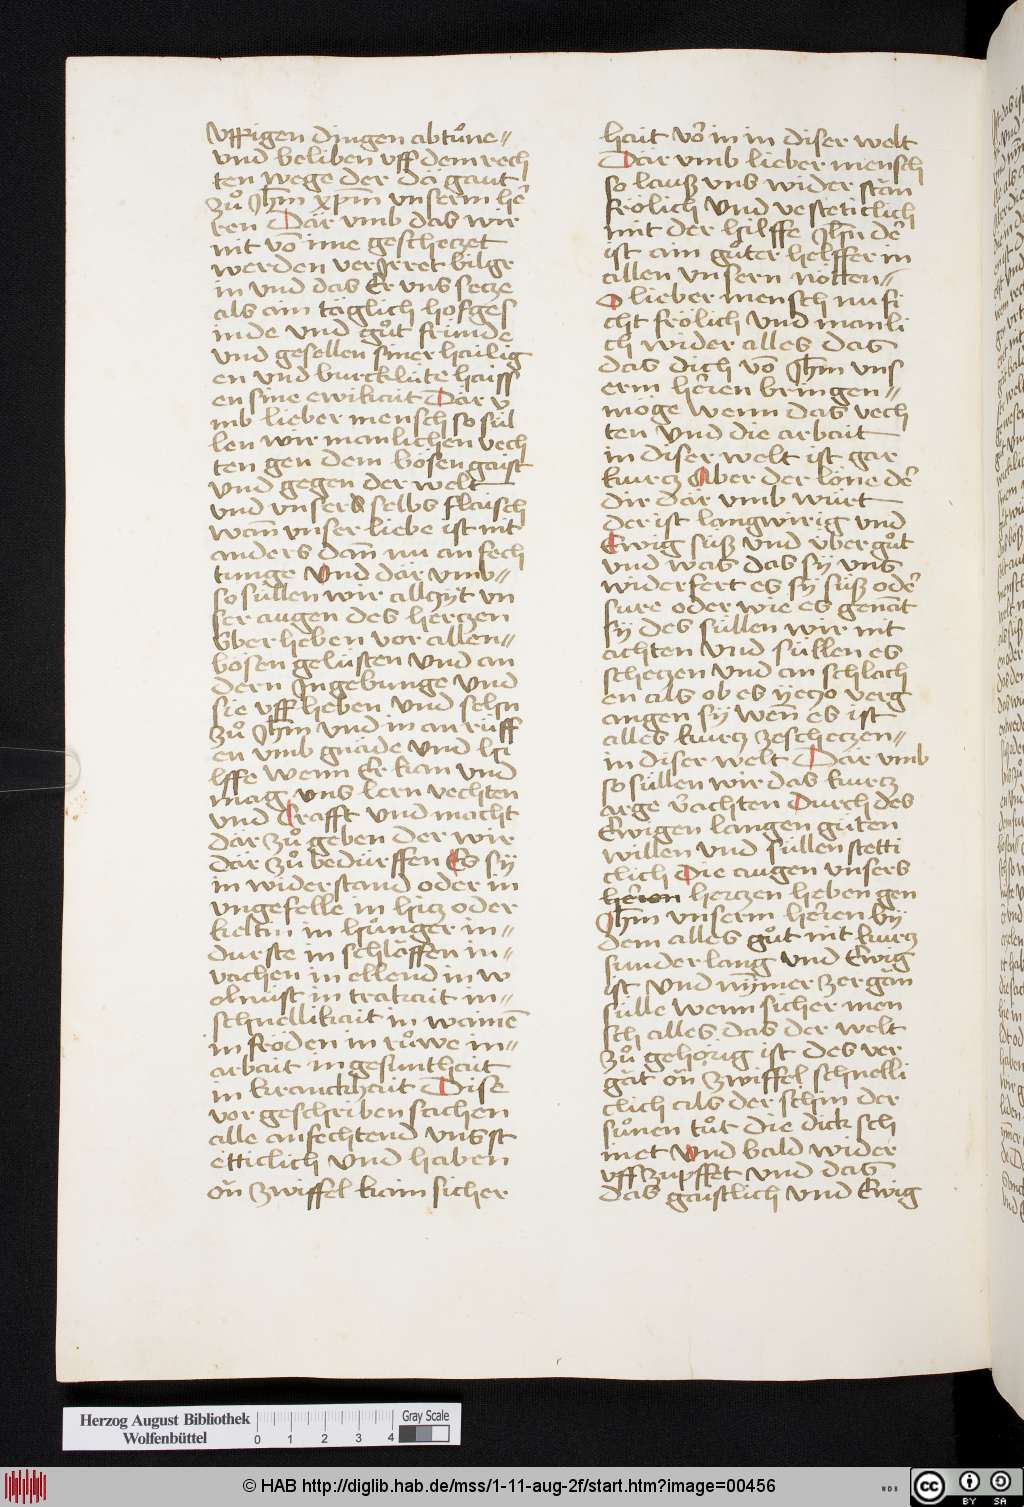 vffrigen dingen abtůne〃
vnd beliben vff dem rech
ten wege der dä gaut
zů Jhm̄ xpm̄ vnserm hē
ren Där vmb das wir
nit vō ime geschetzet
werden verJrret bilgr
in vnd das Er vns setze
als ain täglich hofges
inde vnd gůt fründe
vnd gesellen siner hailig
en vnd burcklüte haiss
en sine ewikait Där v
mb lieber mensch so sül
len wir manlichen vech
ten gen dem bösen gaist
vnd gegen der welt
vnd vnsers selbs flaisch
wan̄ vnser liebe ist nit
anders dan̄ nu an fech
tunge Vnd där vmb〃
so süllen wir allzÿt vn
ser augen des hertzen
v̈ber heben vor allen〃
bösen gelüsten vnd an
dern Jngebunge vnd
sie vff heben vnd sehn
zů Jhm̄ vnd in an rüff
en vmb gnäde vnd hi
lffe wenn Er kan vnd
mag vns lern vechten
vnd Crafft vnd macht
där zů geben der wir
där zů bedürffen Es sÿ
in widerstand oder in
vngefelle in hitz oder
keltin in hůnger in〃
durste in schläffen in〃
wachen in ellend in w
olnust in trakait in〃
schnellikait in wainē
in fröden in růwe in〃
arbait in gesunthait
in kranckhait Dise
vor geschriben sachen
alle anfechtend vns st
etticlich vnd haben
ön̄ zwiffel kain sicher
hait vō in in diser welt
Där vmb lieber mensch
so lauß vns wider stän
frölich vnd vesteticlich
mit der hilffe Jhn̄ dē
ist ain gůter helffer in
allen vnsern nötten〃
O lieber mensch nu fi
cht frölich vnd manli
ch wider alles das
das dich vō Jhm̄ vns
erm hēren bringen〃
möge wenn das vech
ten vnd die arbait
in diser welt ist gar
kurcz Aber der löne dē
dir där vmb würt
der ist langwirig vnd
Ewig süß vnd v̈ber gůt
vnd was das sÿ vns
widerfert es sÿ süß odē
sure oder wie es genāt
sÿ des süllen wir nit
achten vnd süllen es
schetzen vnd an schlach
en als ob es ÿetzo verg
angen sÿ wen̄ es ist
alles kurcz ze schetzen〃
in diser welt Där vmb
so süllen wir das kurcz
arge v̄achten Durch des
Ewigen langen güten
willen vnd süllen stetti
clich Die augen vnsers
hertzen heben gen
Jhm̄ vnserm hēren bÿ
dem alles gůt nit kurcz
sunder lang vnd Ewig
ist vnd nÿmer zergän
sülle wenn sicher men
sch alles das der welt
zů gehörig ist des ver
gät ön̄ zwiffel schnelli
clich als der schin der
sůnen tůt die dick sch
inet Vnd bald wider
vff zupffet vnd das
das gaistlich vnd Ewig
Herzog August Bibliothek
Wolfenbüttel
0 1 2 3 4
Gray Scale
© HAB http://diglib.hab.de/mss/1-11-aug-2f/start.htm?image=00456
WDB
CC BY SA